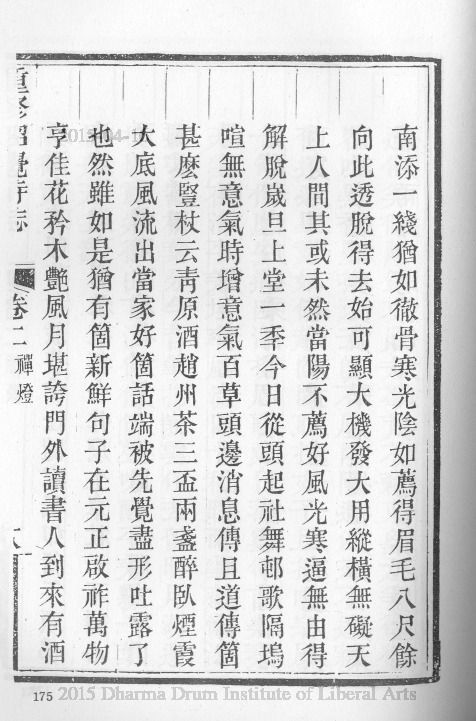 南添一綫猶如徹骨寒光陰如薦得眉毛八尺餘
向此透脫得去始可顯大機發大用縱橫無礙天
上人間其或未然當陽不薦好風光寒逼無由得
解脫歲旦上堂一季今日從頭起社舞邨歌隔塢
喧無意氣時增意氣百草頭邊消息傳且道傳箇
甚麼豎杖云青原酒趙州茶三盃兩盞醉臥煙霞
大底風流出當家好箇話端被先覺盡形吐露了
也然雖如是猶有箇新鮮句子在元正啟祚萬物
亨佳花矜木艷風月堪誇門外讀書人到來有酒
重修昭覺寺志
卷二
禪燈
八
175 2015 Dharma Drum Institute of Liberal Arts